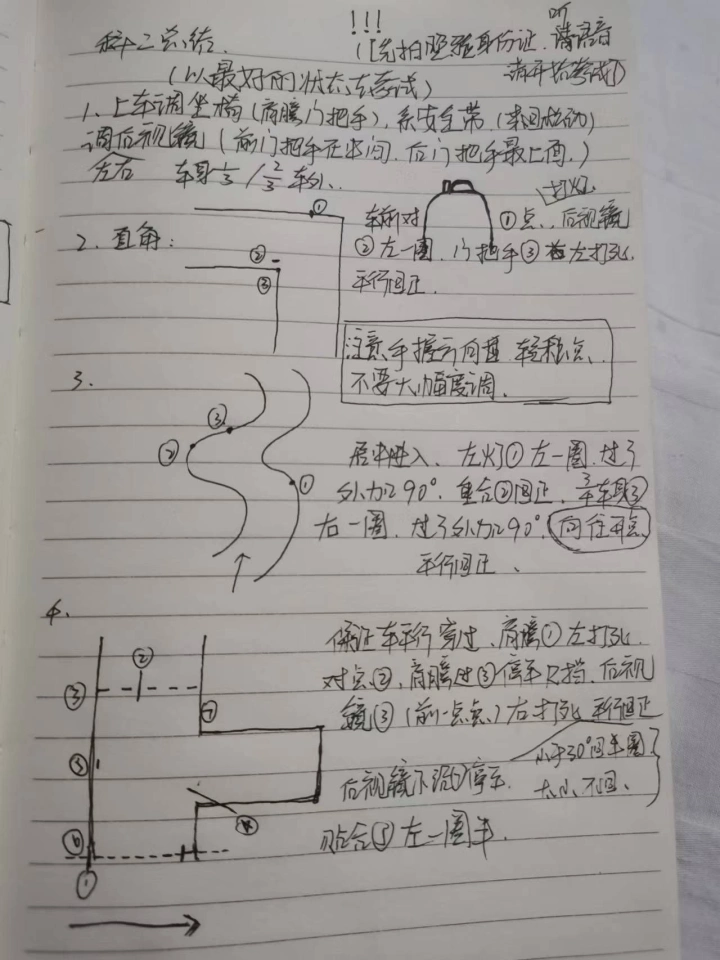 !!!
科二总结.
(以最好的状态去考试)
(先拍照验身份证. 听语音
请开始考试)
1、上车调坐椅(肩膀门把手), 系安全带.
调后视镜 (前门把手在中间. 后门把手最上面.)
左右 车身1/3 / 2/3 车外.
打灯
2、直角:
① ② ③
车前对 ①点、后视镜
②左一圈. 门把手③ 左打死.
平行回正.
注意手握方向盘 轻松点.
不要大幅度调.
3.
③ ② ①
居中进入. 左灯①左一圈. 过了
90°. 重合②回正. 车身③
右一圈. 过了 90°. 向右
平行回正.
4.
保证车平行穿过. 肩膀①左打死.
对点②. 肩膀过③停车R挡. 后视
镜③(前一点点)右打死 平行回正
小于30°回半圈
大 不回.
后视镜下沿 停车.
贴合⑤左一圈半.
② ③ ⑦ ⑤ ⑥ ①